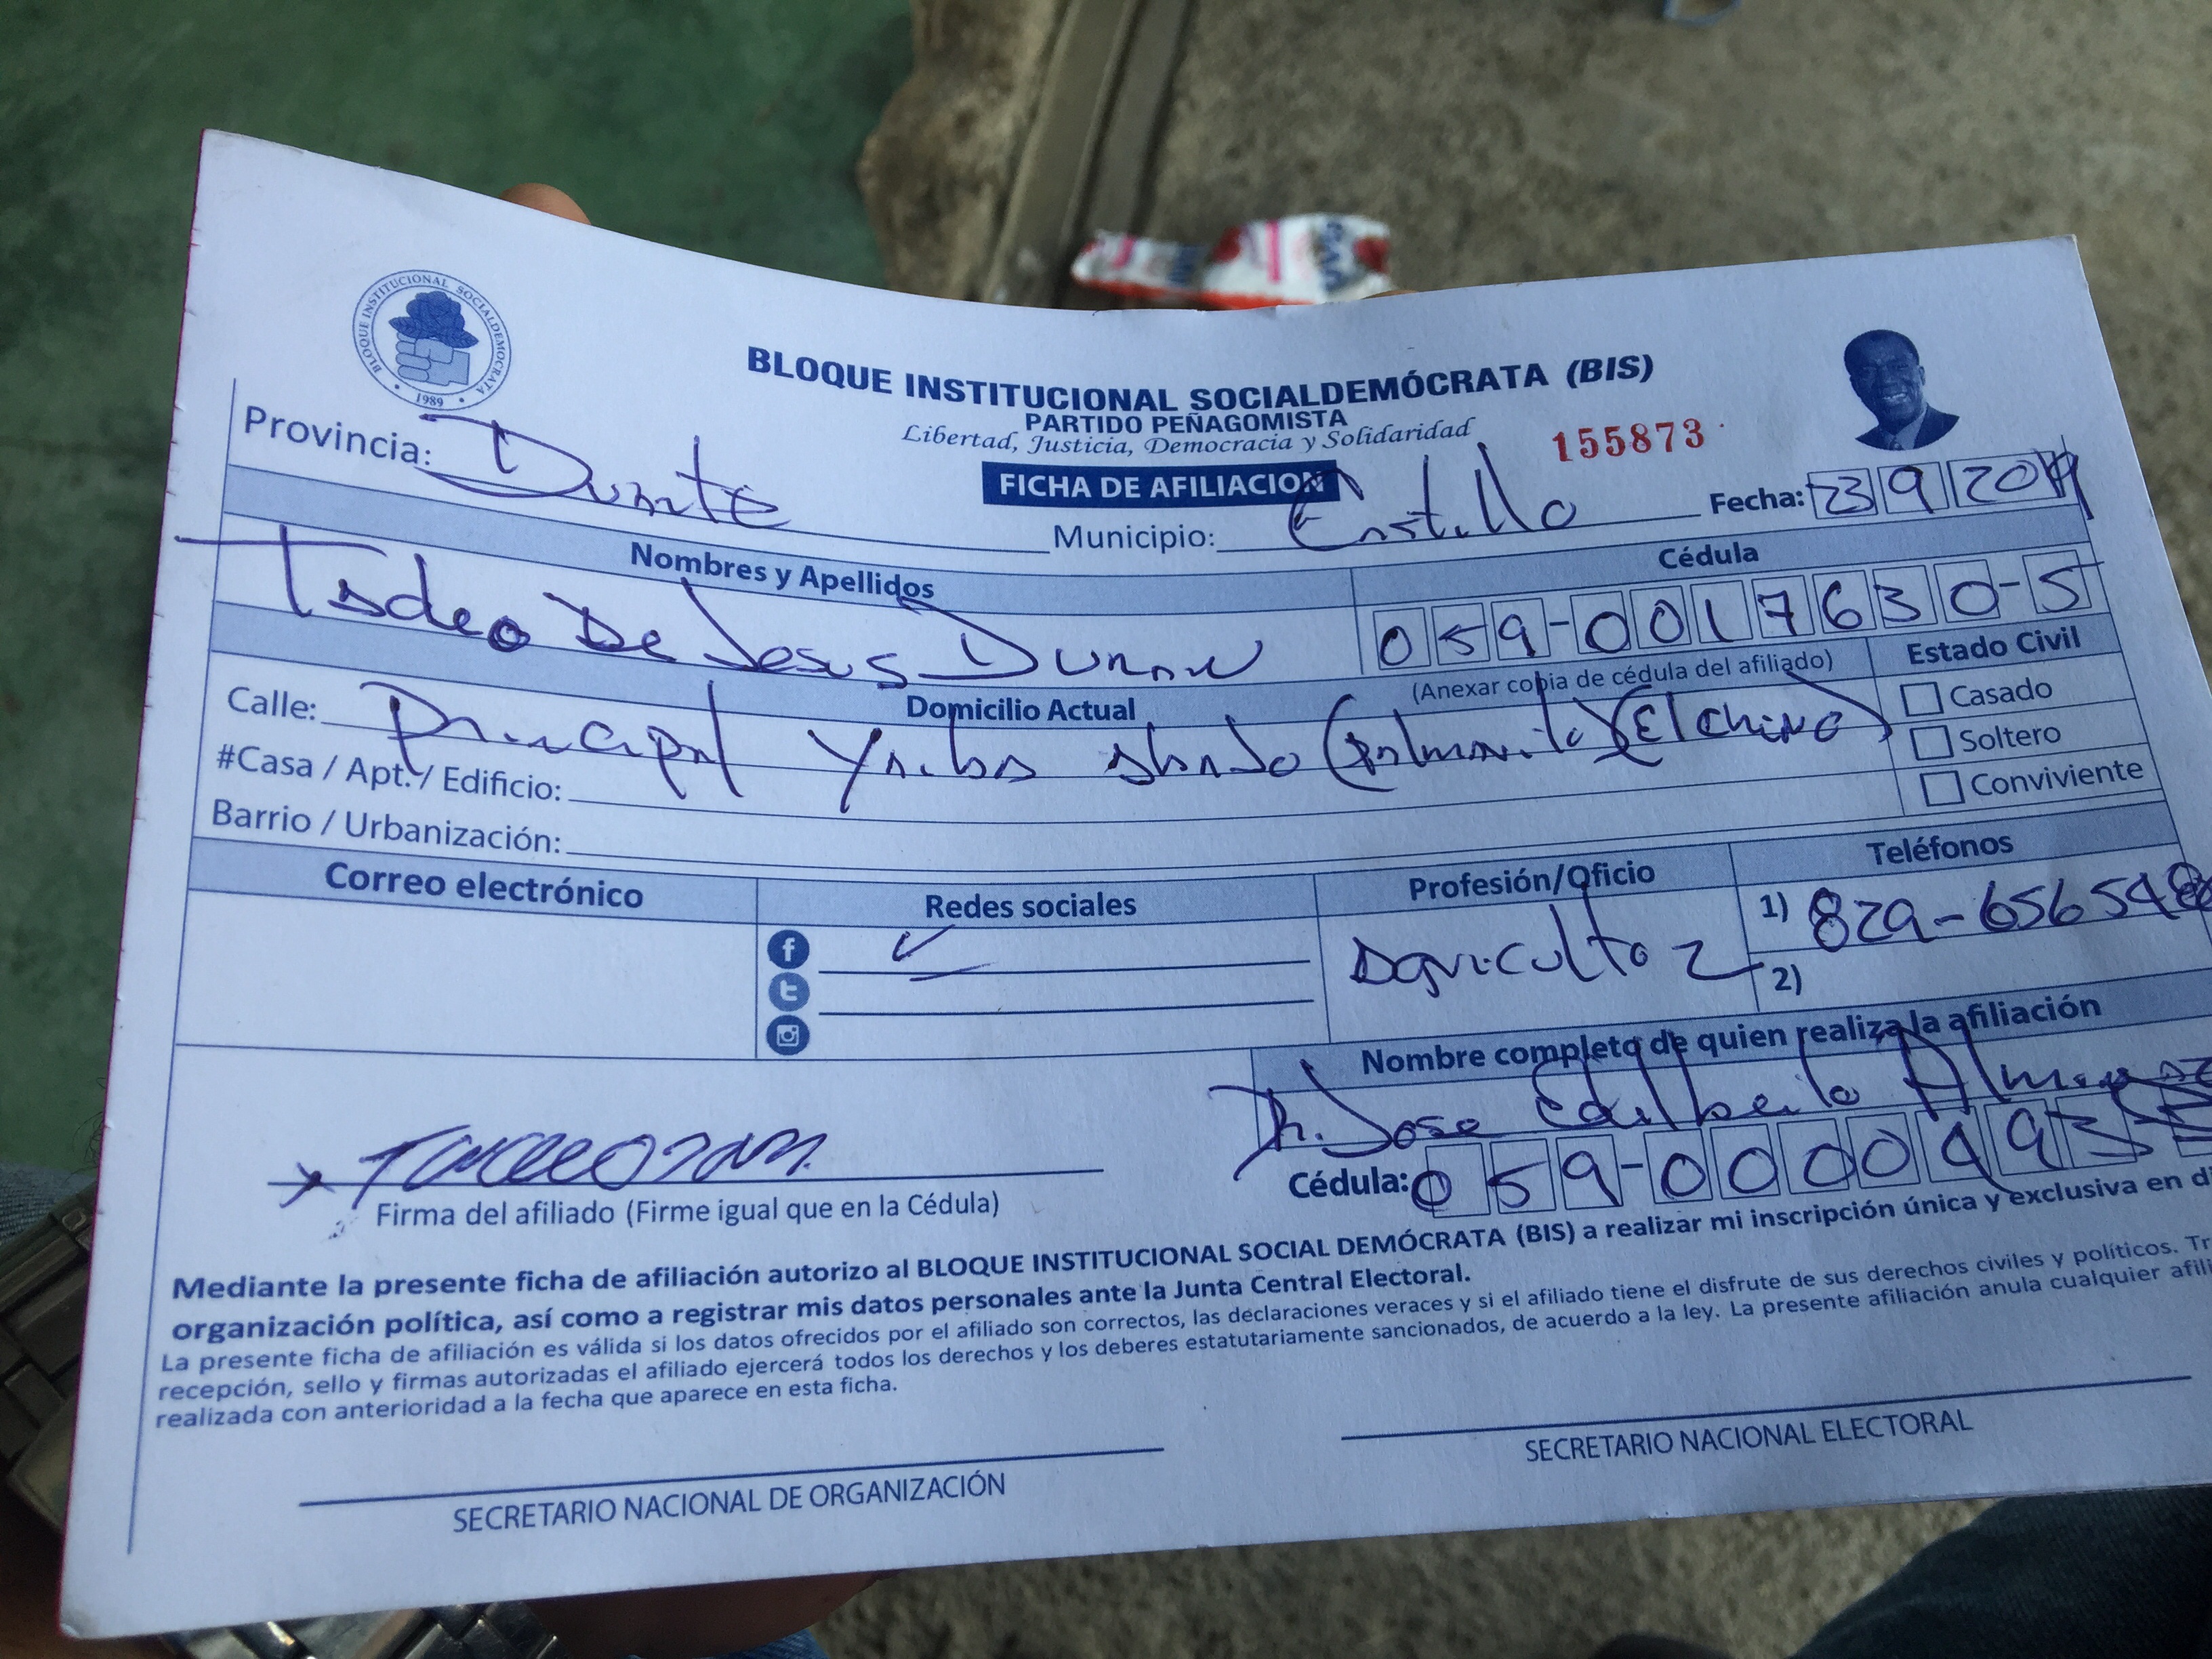 BLOQUE INSTITUCIONAL SOCIALDEMOCRATA • 1989 •
BLOQUE INSTITUCIONAL SOCIALDEMÓCRATA (BIS)
PARTIDO PEÑAGOMISTA
Libertad, Justicia, Democracia y Solidaridad
155873
FICHA DE AFILIACION
Provincia: Duarte Municipio: Castillo Fecha: 23 9 2019
Nombres y Apellidos Cédula
Tadeo De Jesus Duran 059-0017630-5
(Anexar copia de cédula del afiliado)
Domicilio Actual Estado Civil
Calle: Principal Yaiba abajo (Palmarito) (El chino) Casado
#Casa / Apt. / Edificio: Soltero
Barrio / Urbanización: Conviviente
Correo electrónico Redes sociales Profesión/Oficio Teléfonos
Agricultor 1) 829-656548
2)
Nombre completo de quien realiza la afiliación
Dr. Jose Edilberto
Cédula: 059-0000493
Firma del afiliado (Firme igual que en la Cédula)
Mediante la presente ficha de afiliación autorizo al BLOQUE INSTITUCIONAL SOCIAL DEMÓCRATA (BIS) a realizar mi inscripción única y exclusiva en
organización política, así como a registrar mis datos personales ante la Junta Central Electoral.
La presente ficha de afiliación es válida si los datos ofrecidos por el afiliado son correctos, las declaraciones veraces y si el afiliado tiene el disfrute de sus derechos civiles y políticos.
recepción, sello y firmas autorizadas el afiliado ejercerá todos los derechos y los deberes estatutariamente sancionados, de acuerdo a la ley. La presente afiliación anula cualquier
realizada con anterioridad a la fecha que aparece en esta ficha.
SECRETARIO NACIONAL DE ORGANIZACIÓN SECRETARIO NACIONAL ELECTORAL